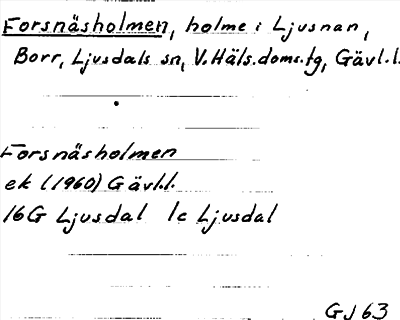 Forsnäsholmen, holme i Ljusnan,
Borr, Ljusdals sn, V. Häls. doms. tg, Gävl. l.
Forsnäsholmen
ek (1960) Gävl.l.
16G Ljusdal 1c Ljusdal
GJ 63